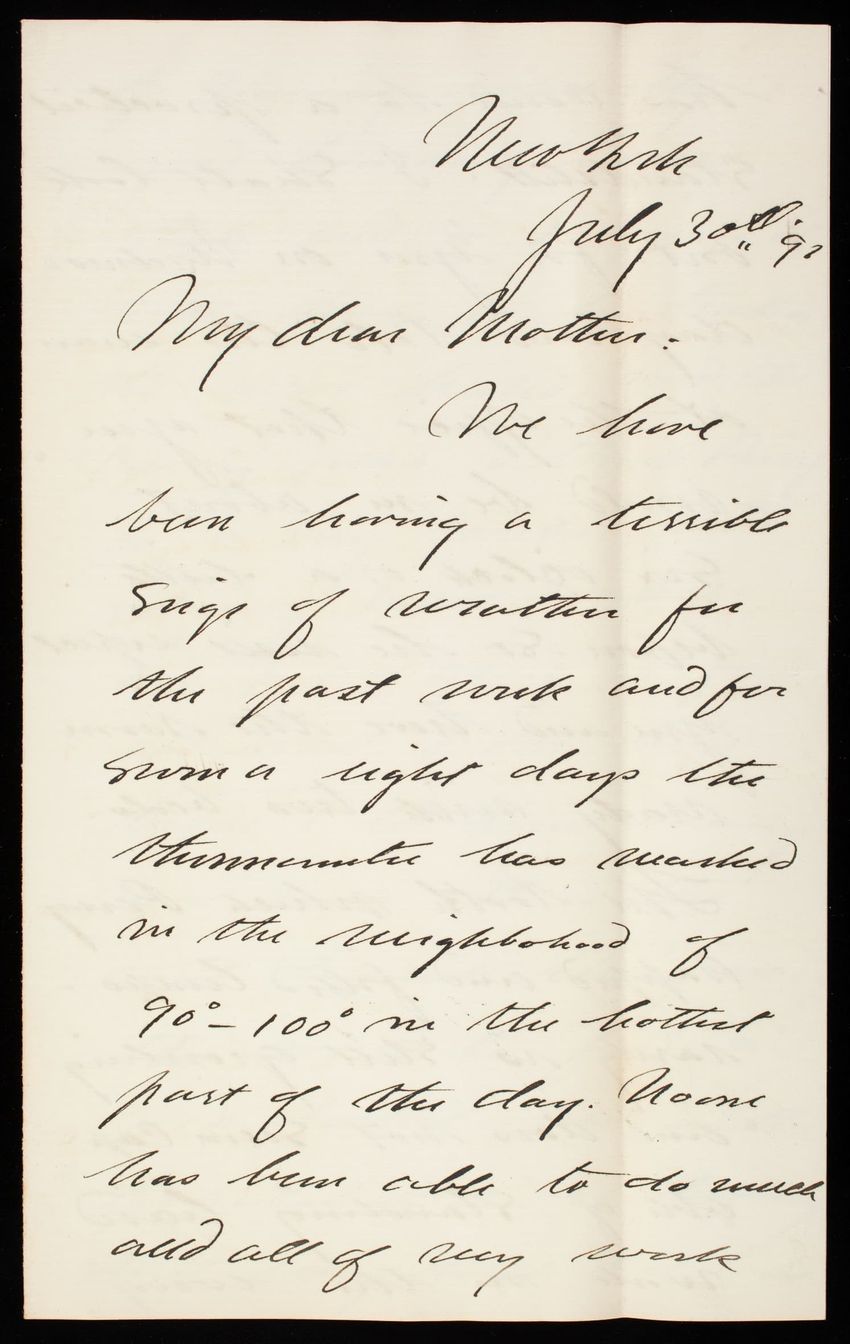 New York
July 30th. 92
My dear Mother:
We have
been having a terrible
siege of weather for
the past week and for
some eight days the
thermometer has marked
in the neighbohood of
90° - 100° in the hottest
part of the day. No one
has been able to do much
and all of my work